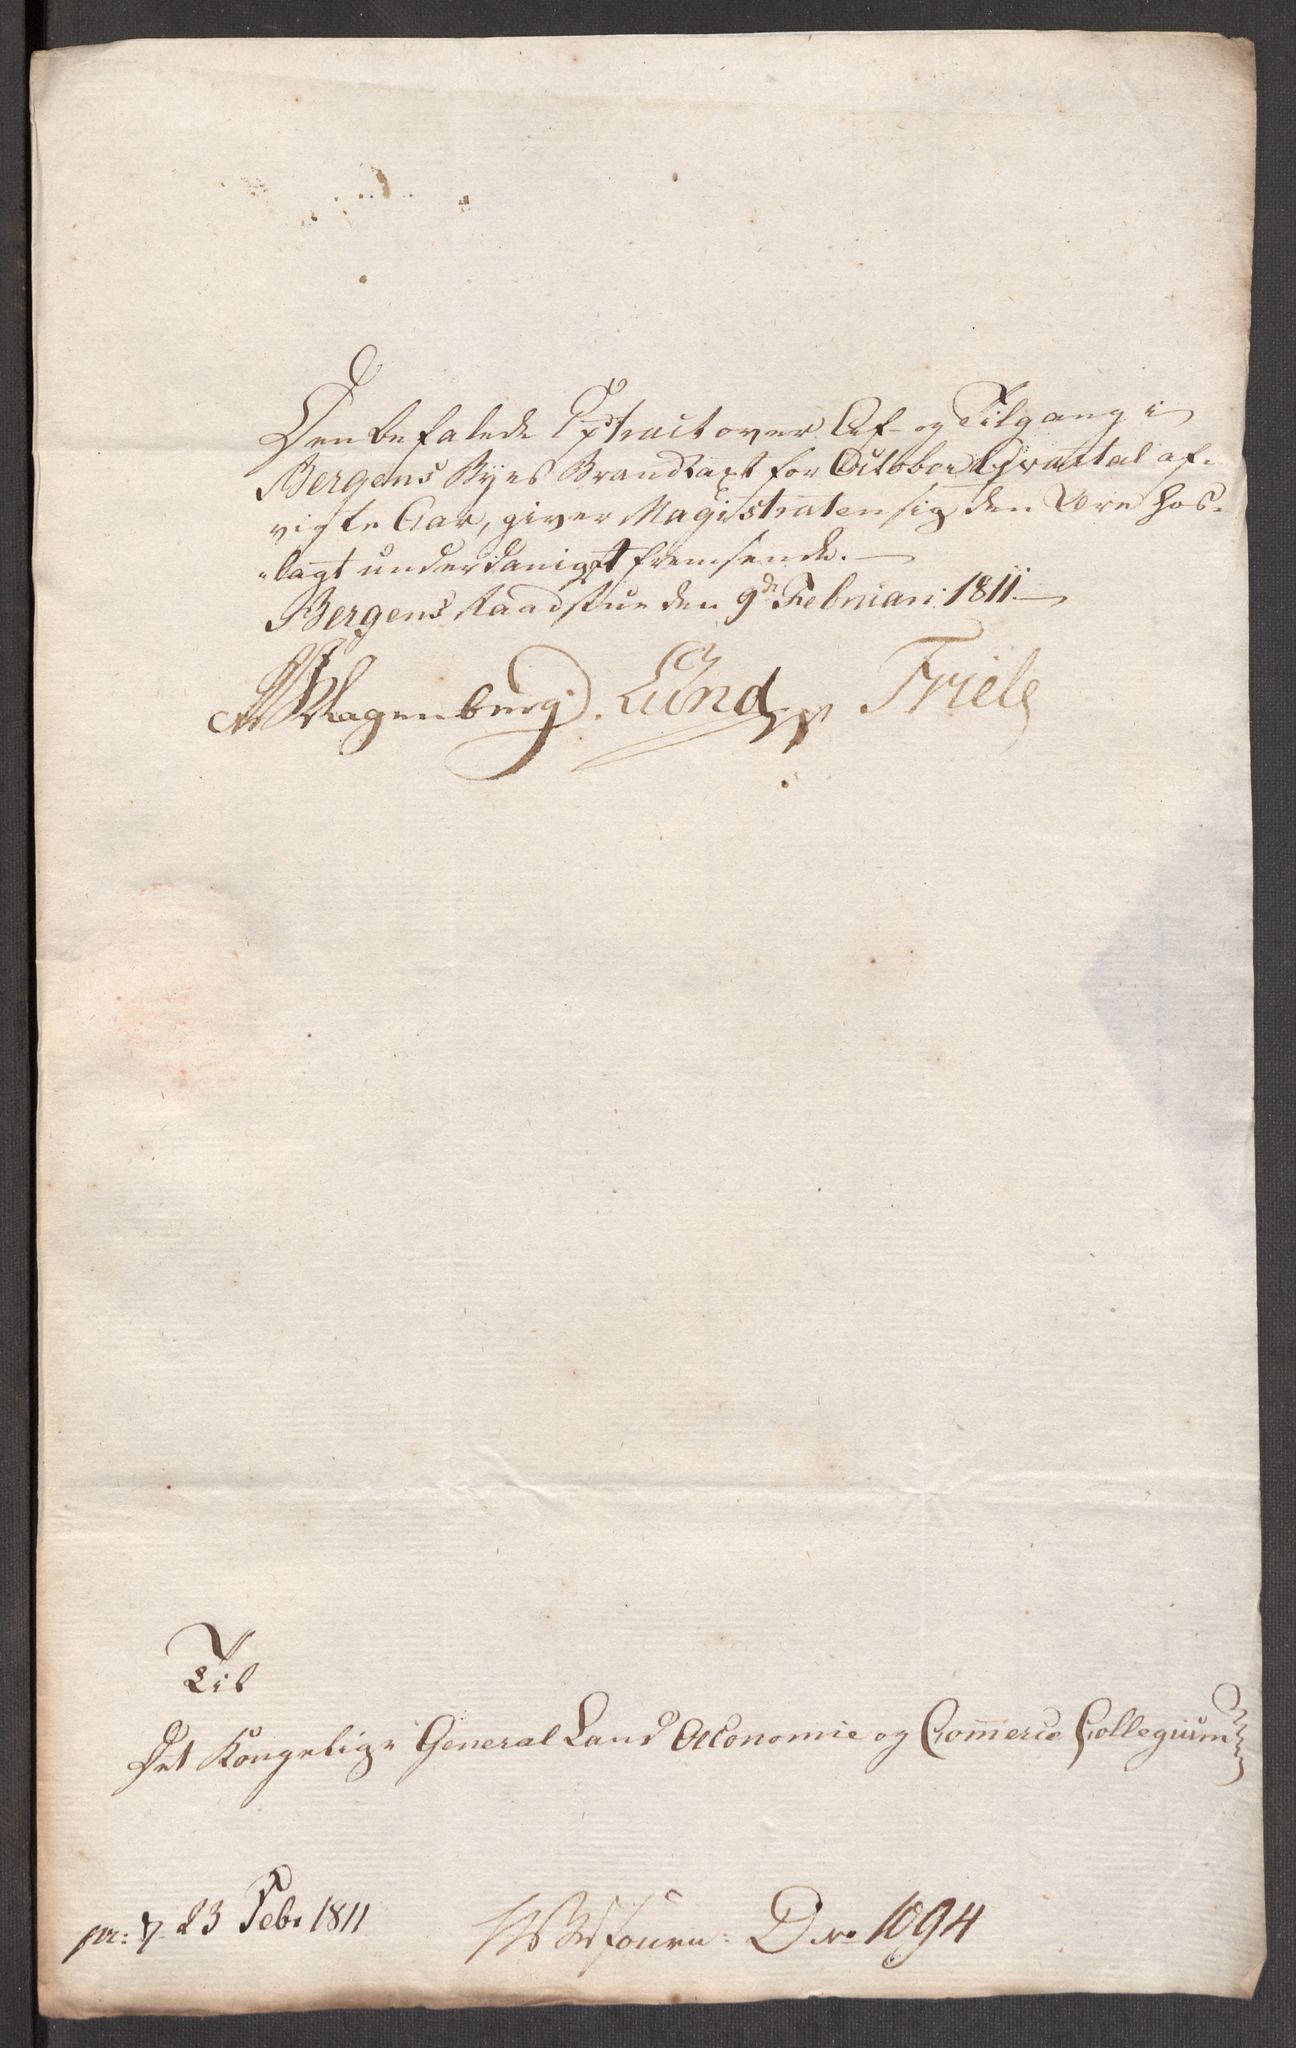 Den befalede Extract over Af- og Tilgang i
Bergens Byes Brandtaxt for Octobor Qvartal af-
vigte Aar, giver Magistraten sig den Ære hos-
-lagt underdanigst fremsende.
Bergens Raadstue den 9de Februari 1811
Lund Friele
Til
Det Kongelige General Land Oeconomie og Commerce Collegium
pr: d. 23 Feb. 1811 Journ: D No 1094